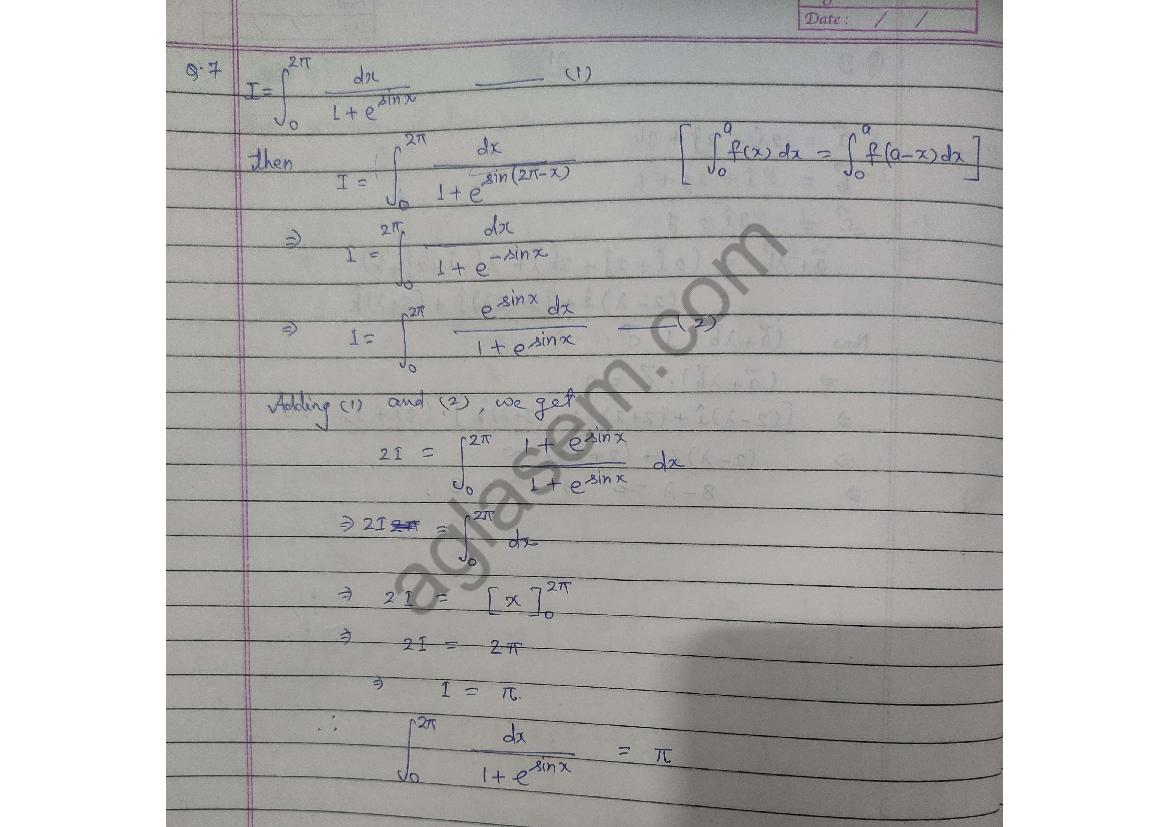 Date: / /
Q.7 I = ∫₀^{2π} dx / (1 + e^{sinx}) —— (1)
then I = ∫₀^{2π} dx / (1 + e^{sin(2π-x)}) [∫₀^a f(x) dx = ∫₀^a f(a-x) dx]
⇒ I = ∫₀^{2π} dx / (1 + e^{-sinx})
⇒ I = ∫₀^{2π} e^{sinx} dx / (1 + e^{sinx}) —— (2)
Adding (1) and (2), we get
2I = ∫₀^{2π} (1 + e^{sinx}) / (1 + e^{sinx}) dx
⇒ 2I = ∫₀^{2π} dx
⇒ 2I = [x]₀^{2π}
⇒ 2I = 2π
⇒ I = π.
∴ ∫₀^{2π} dx / (1 + e^{sinx}) = π
aglasem.com